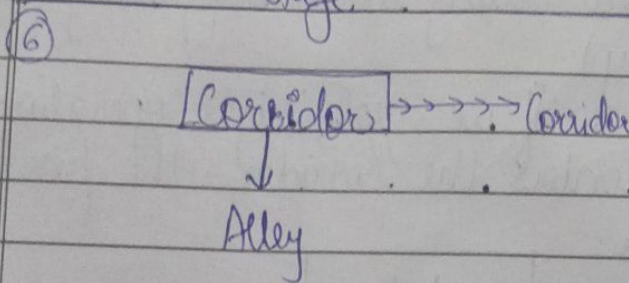 6
Corridor →→→→→ Corridor
↓
Alley